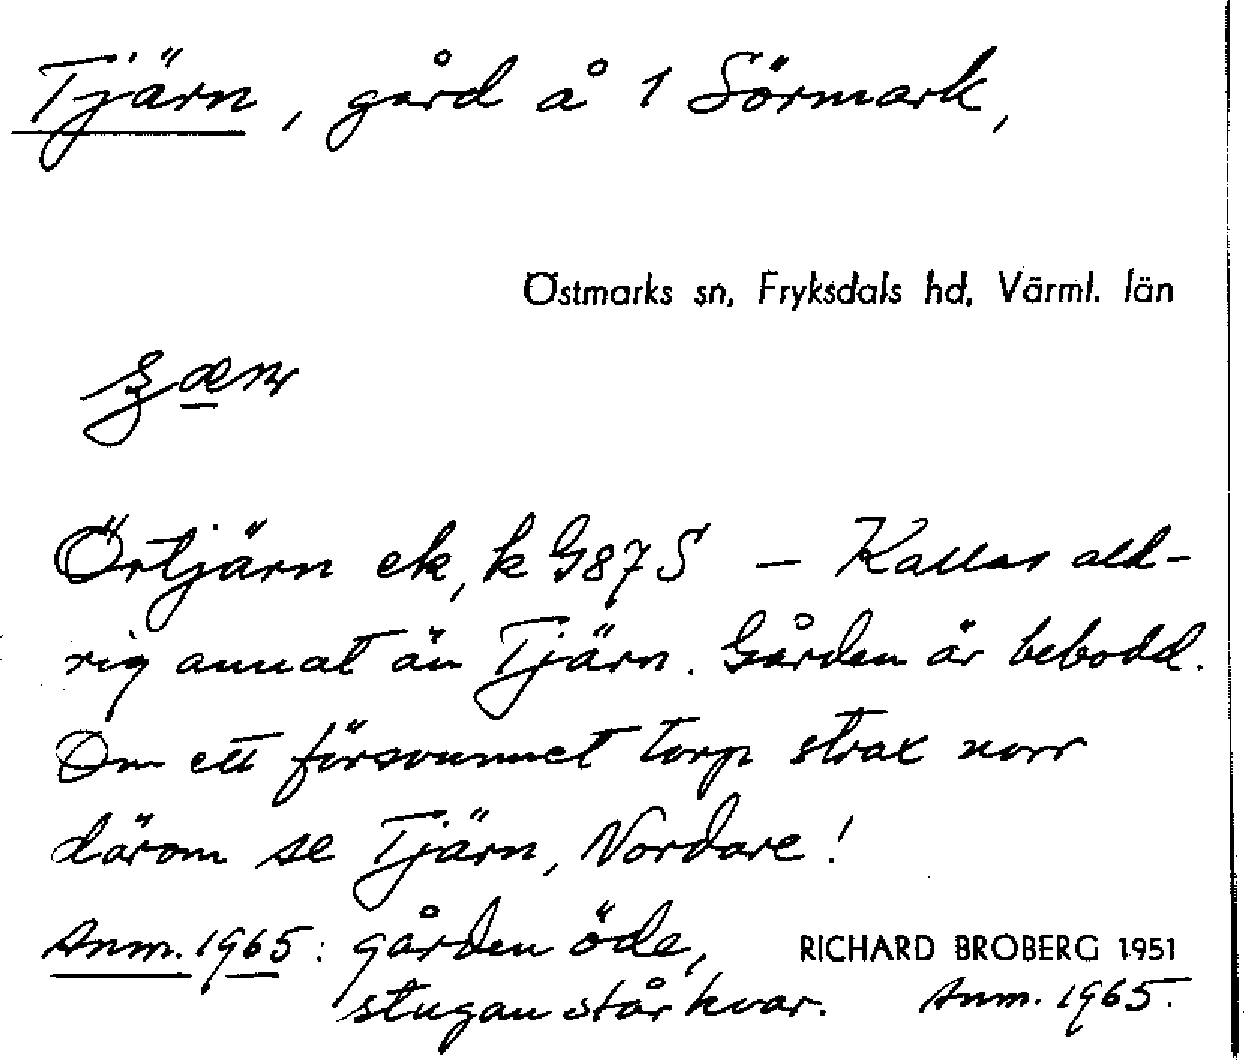 Tjärn, gård å 1 Sörmark,
Östmarks sn, Fryksdals hd, Värml. län
Örtjärn ek, k G87S – Kallas ald-
rig annat än Tjärn. Gården är bebodd.
Om ett försvunnet torp strax norr
därom se Tjärn, Nordare!
Anm. 1965: gården öde,
stugan står kvar.
RICHARD BROBERG 1951
Anm. 1965.